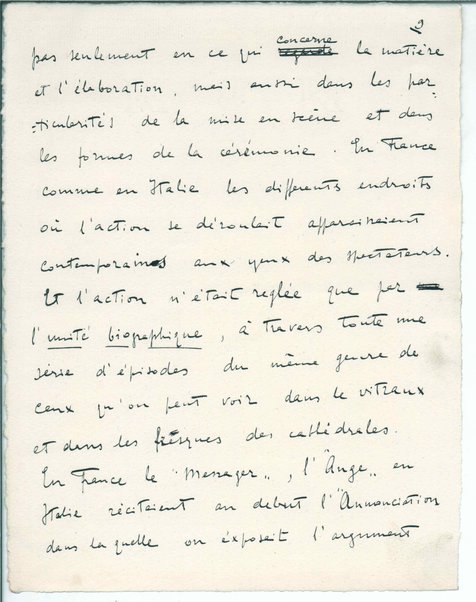 2
pas seulement en ce qui concerne la matière
et l'élaboration, mais aussi dans les par
-ticularités de la mise en scène et dans
les formes de la cérémonie. En France
comme en Italie les differents endroits
où l'action se déroulait apparaissaient
contemporains aux yeux des spectateurs.
Et l'action n'était reglée que par
l'unité biographique, à travers toute une
série d'épisodes du même genre de
ceux qu'on peut voir dans le vitraux
et dans les frésques des cathédrales.
En France le "Messager", l'"Ange" en
Italie récitaient au debut l'"Annonciation
dans laquelle on exposait l'argument